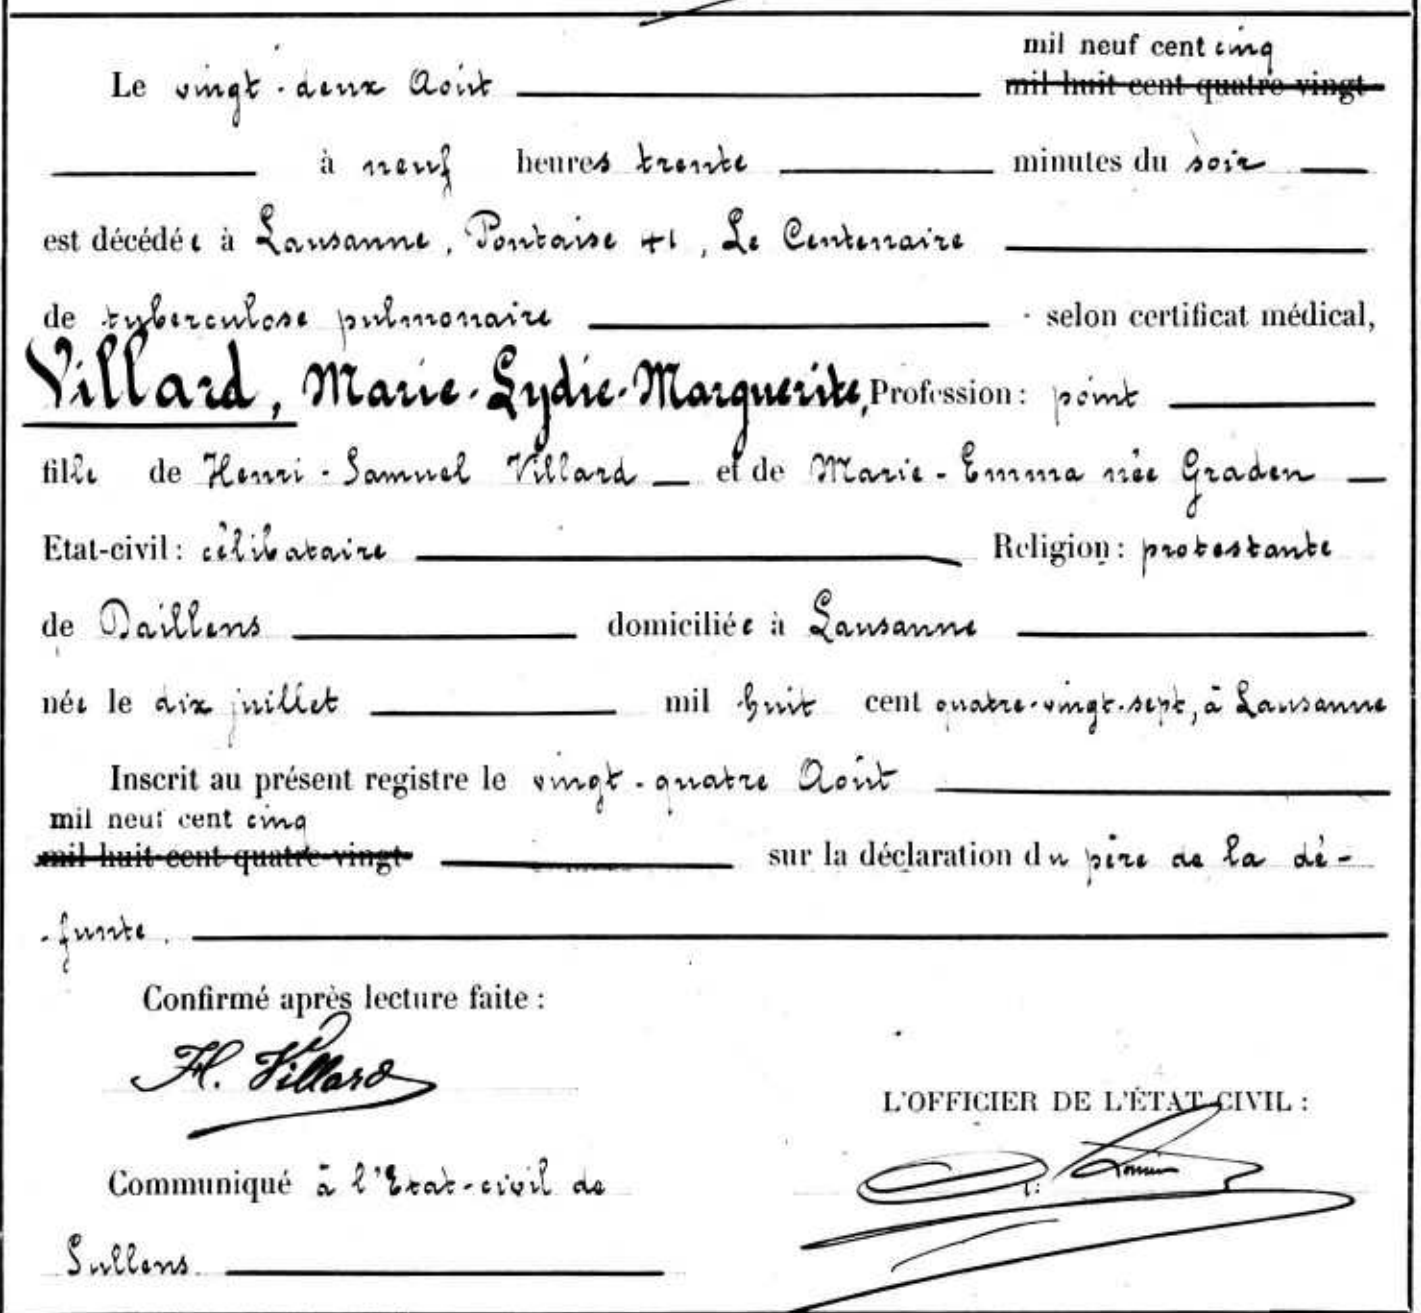 mil neuf cent cinq
Le vingt-deux Août mil huit cent quatre-vingt
à neuf heures trente minutes du soir
est décédée à Lausanne, Pontaise 41, Le Centenaire
de tuberculose pulmonaire - selon certificat médical,
Villard, Marie-Lydie-Marguerite, Profession : point
fille de Henri-Samuel Villard et de Marie-Emma née Graden
Etat-civil : célibataire Religion : protestante
de Daillens domiciliée à Lausanne
née le dix juillet mil huit cent quatre-vingt-sept, à Lausanne
Inscrit au présent registre le vingt-quatre Août
mil neuf cent cinq
mil huit cent quatre-vingt sur la déclaration du père de la dé-
-funte.
Confirmé après lecture faite :
H. Villard
L'OFFICIER DE L'ÉTAT-CIVIL :
Communiqué à l'Etat-civil de
Sullens